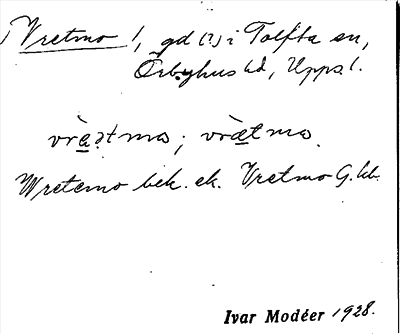 Vretmo !, gd (?) i Tolfta sn,
Örbyhus hd, Upps. l.
vräətmo ; vrätmo.
Wretemo bek. ek. Vretmo G. kb.
Ivar Modéer 1928.